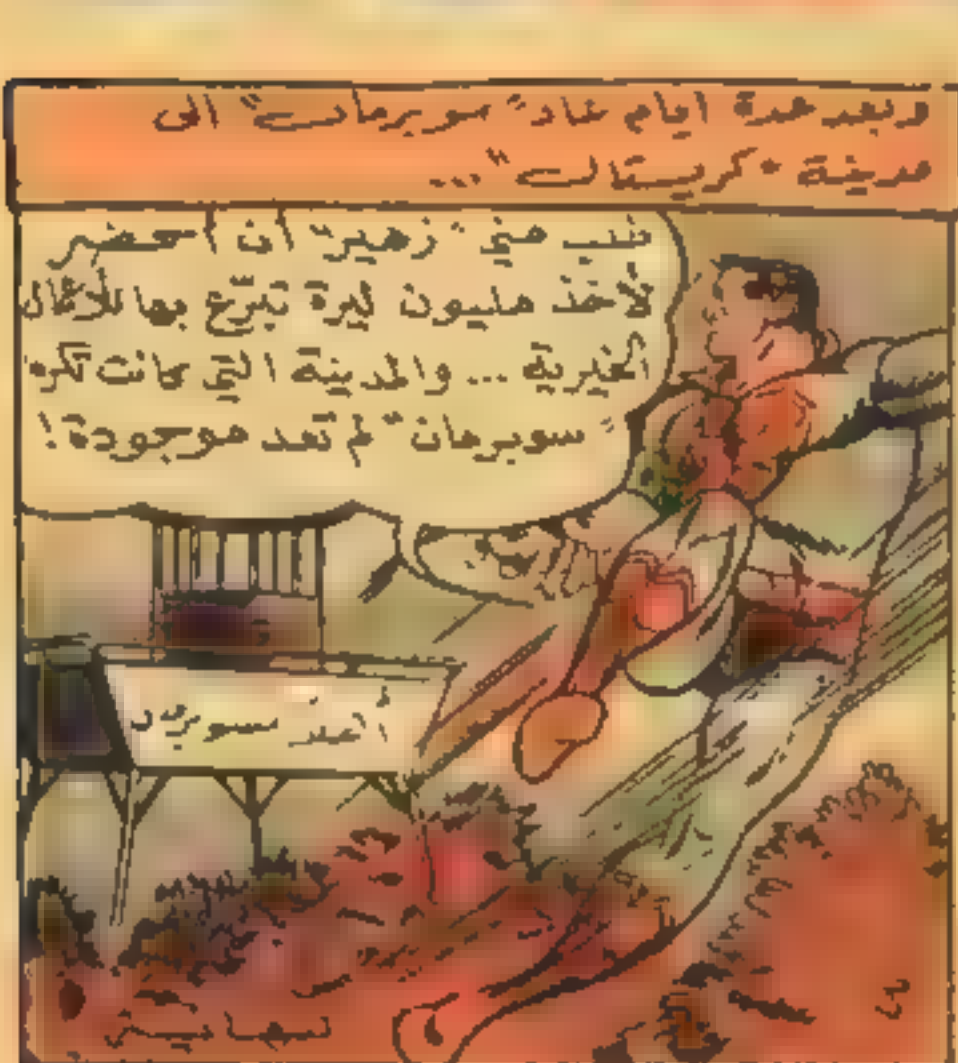 وبعد عدة ايام عاد "سوبرمان" الى
مدينة "كريستال"...
طلب مني "زهير" ان احضر
لآخذ مليون ليرة تبرّع بها للاعمال
الخيرية ... والمدينة التي كانت تكره
"سوبرمان" لم تعد موجودة!